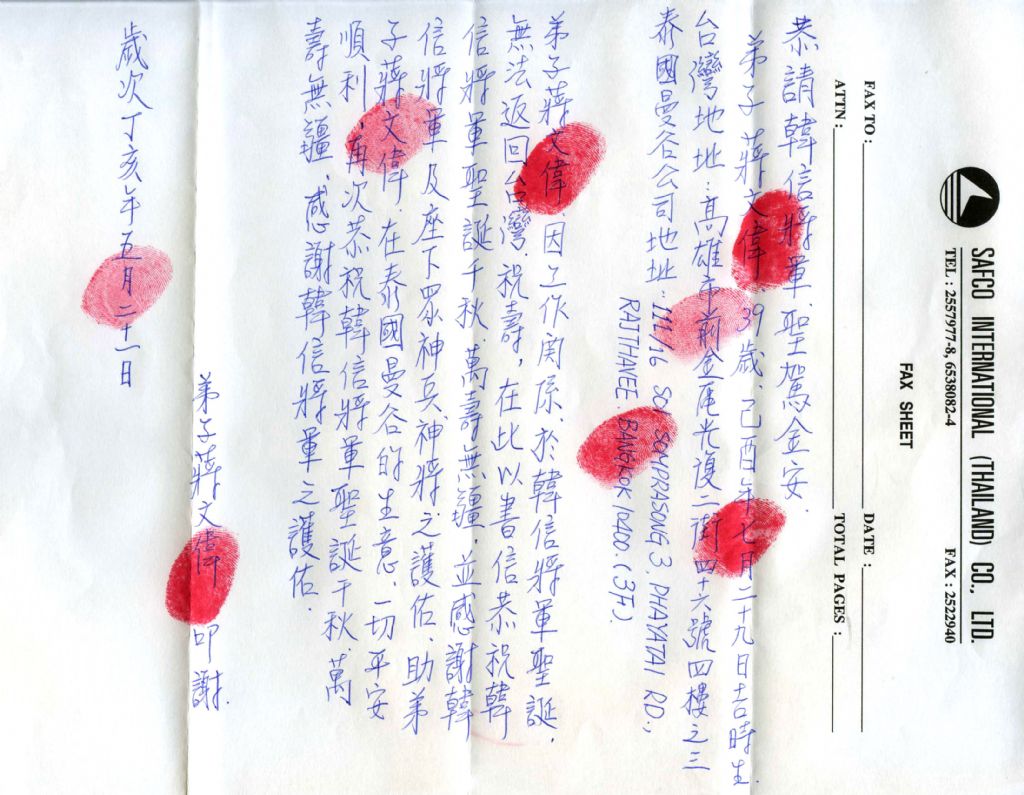 SAFCO INTERNATIONAL (THAILAND) CO., LTD.
TEL : 2557977-8, 6538082-4 FAX : 2522940
FAX SHEET
FAX TO : DATE :
ATTN : TOTAL PAGES :
恭請韓信將軍.聖駕金安.
弟子蔣文偉.39歲.己酉年七月二十九日吉時生.
台灣地址:高雄市前金區光復二街四十六號四樓之三
泰國曼谷公司地址:111/16 SOI SOMPRASONG 3 PHAYATAI RD.,
RAJTHAVEE BANGKOK 10400.(3F).
弟子蔣文偉.因工作関係.於韓信將軍聖誕.
無法返回台灣.祝壽,在此以書信恭祝韓
信將軍聖誕千秋.萬壽無疆.並感謝韓
信將軍及座下眾神兵.神將.之護佑.助弟
子蔣文偉.在泰國曼谷的生意.一切平安
順利.再次恭祝韓信將軍聖誕千秋.萬
壽無疆.感謝韓信將軍之護佑.
弟子蔣文偉 叩謝.
歲次丁亥年五月二十一日